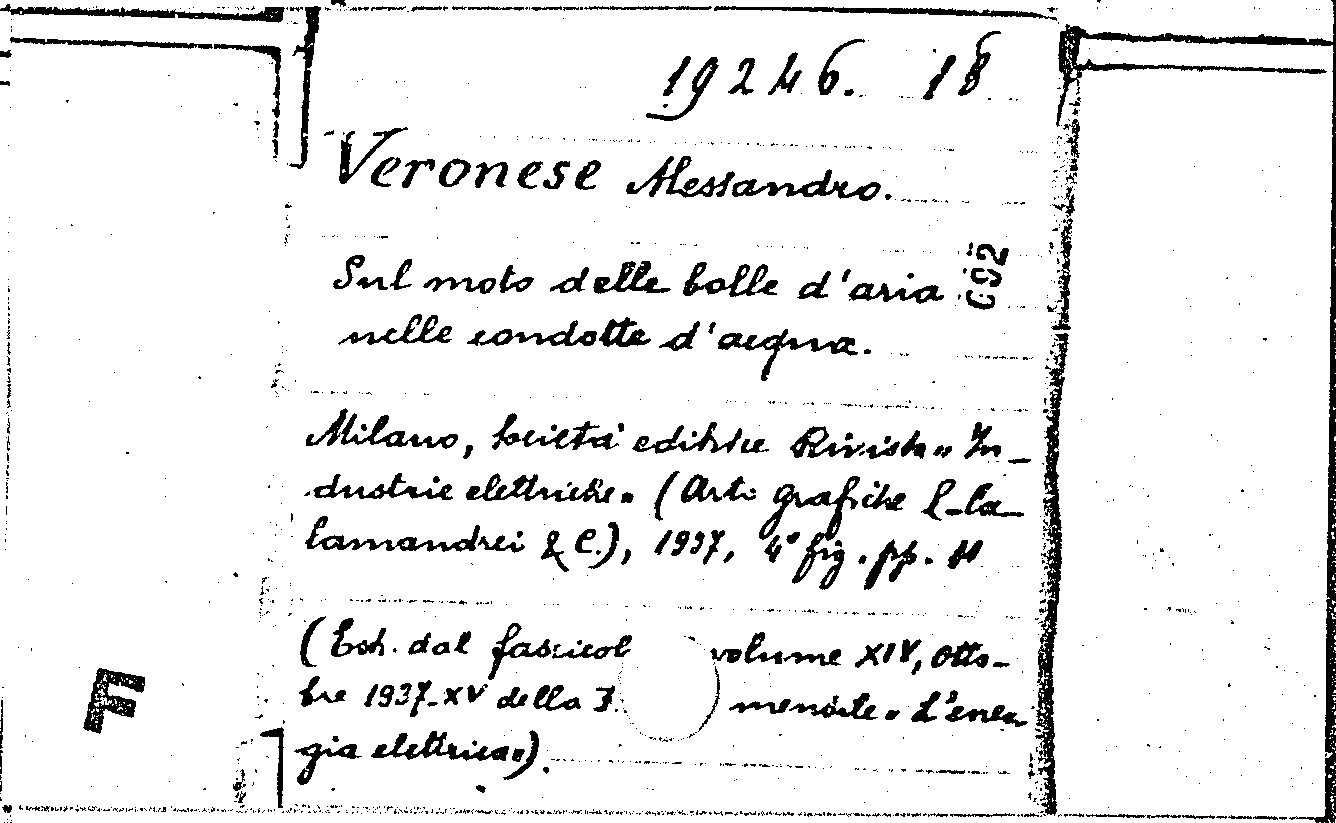 19246. 18
Veronese Alessandro.
Sul moto delle bolle d'aria
692
nelle condotte d'acqua.
Milano, Società editrice Rivista "In_
dustrie elettriche" (Arti grafiche E_Ca_
lamandrei & C.), 1937, 4° fig. pp. 11
(Estr. dal fascicol volume XIV, otto-
bre 1937-XV della mensile "L'ener-
gia elettrica").
F